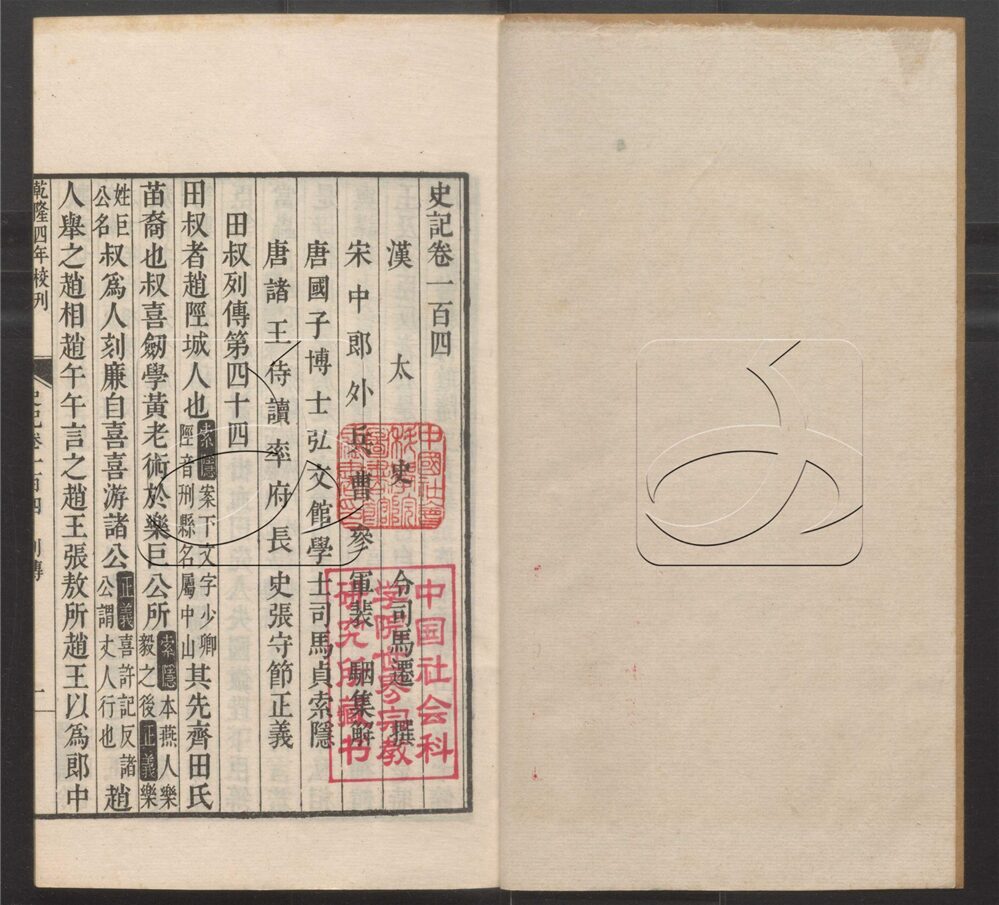 史記卷一百四
漢太史令司馬遷撰
宋中郎外兵曹參軍裴駰集解
唐國子博士弘文館學士司馬貞索隱
唐諸王侍讀率府長史張守節正義
田叔列傳第四十四
田叔者趙陘城人也索隱案下文字少卿陘音刑縣名屬中山其先齊田氏
苗裔也叔喜劒學黃老術於樂巨公所索隱本燕人樂毅之後正義樂
姓巨公名叔爲人刻廉自喜喜游諸公正義喜許記反諸公謂丈人行也趙
人舉之趙相趙午午言之趙王張敖所趙王以爲郎中
乾隆四年校刊
中国社会科
学院世界宗教
研究所藏书